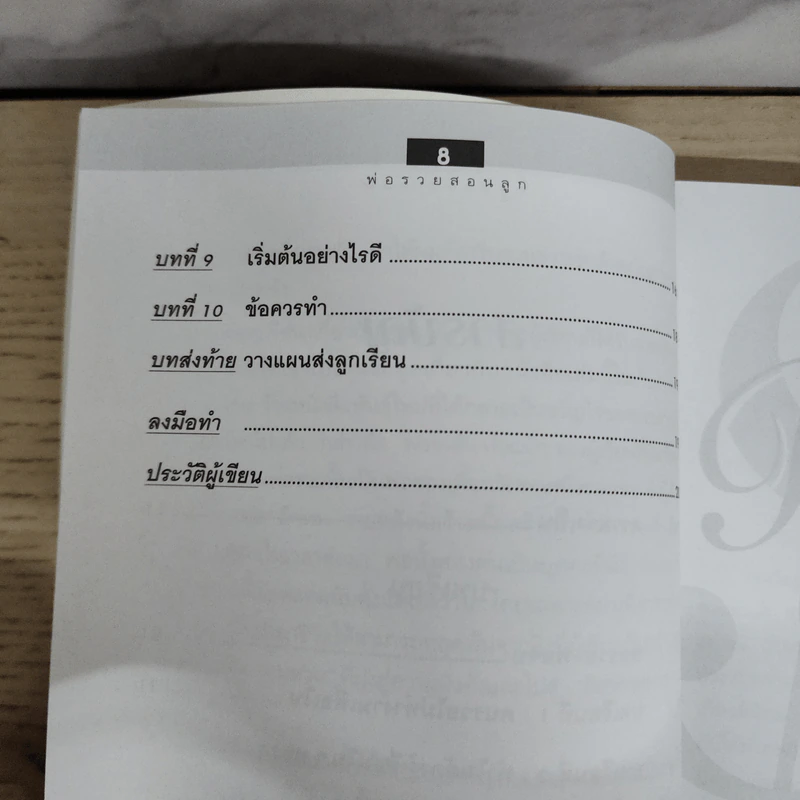 8
พ่อรวยสอนลูก
บทที่ 9 เริ่มต้นอย่างไรดี
บทที่ 10 ข้อควรทำ
บทส่งท้าย วางแผนส่งลูกเรียน
ลงมือทำ
ประวัติผู้เขียน